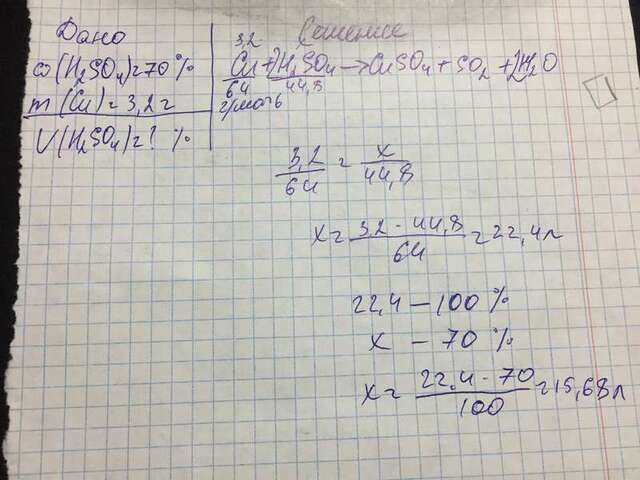 Дано
ω(H₂SO₄)=70%
m(Cu)=3,2г
V(H₂SO₄)=? %
Решение
3,2 x
Cu+2H₂SO₄→CuSO₄+SO₂+2H₂O
64 44,8
г/моль
3,2/64 = x/44,8
x= 3,2-44,8/64 =22,4л
22,4 - 100%
x - 70%
x= 22,4-70/100 =15,68л